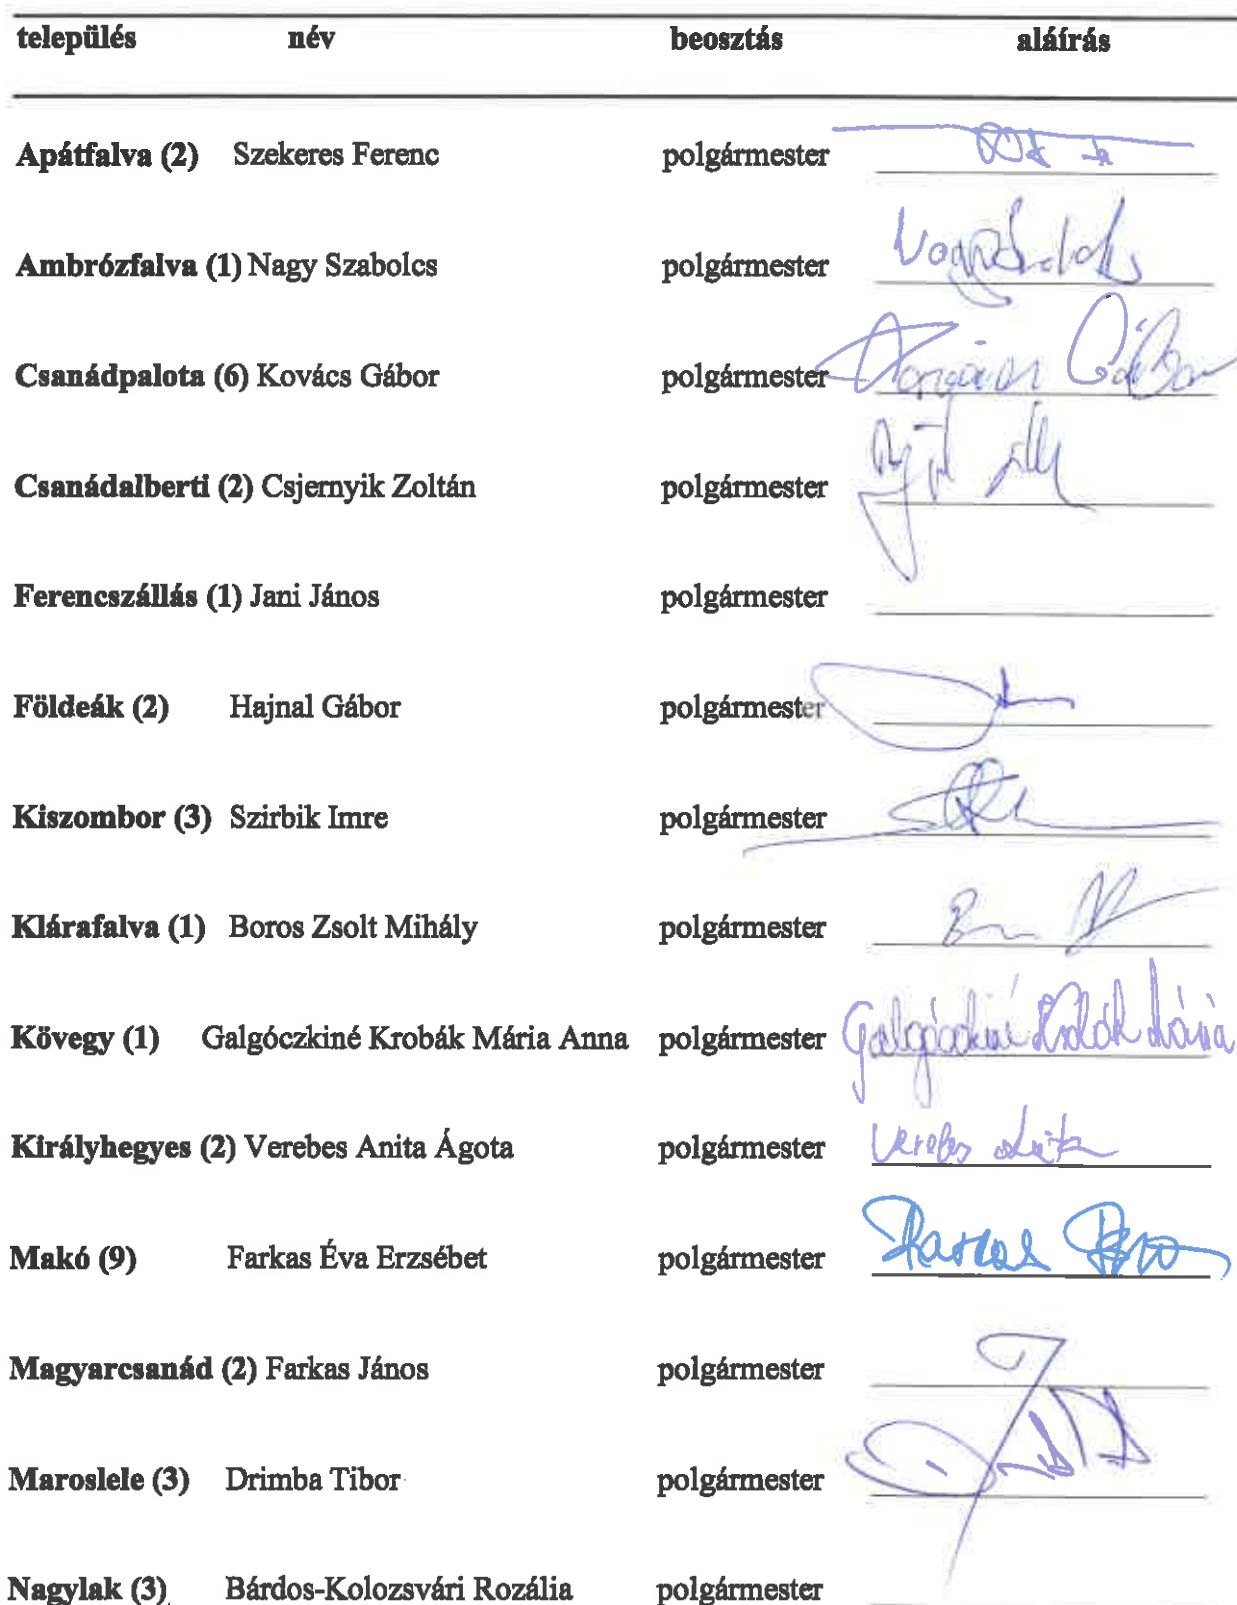 település név beosztás aláírás
Apátfalva (2) Szekeres Ferenc polgármester
Ambrózfalva (1) Nagy Szabolcs polgármester
Csanádpalota (6) Kovács Gábor polgármester
Csanádalberti (2) Csjernyik Zoltán polgármester
Ferencszállás (1) Jani János polgármester
Földeák (2) Hajnal Gábor polgármester
Kiszombor (3) Szirbik Imre polgármester
Klárafalva (1) Boros Zsolt Mihály polgármester
Kövegy (1) Galgóczkiné Krobák Mária Anna polgármester Galgóczkiné Krobák Mária
Királyhegyes (2) Verebes Anita Ágota polgármester Verebes Anita
Makó (9) Farkas Éva Erzsébet polgármester Farkas
Magyarcsanád (2) Farkas János polgármester
Maroslele (3) Drimba Tibor polgármester
Nagylak (3) Bárdos-Kolozsvári Rozália polgármester